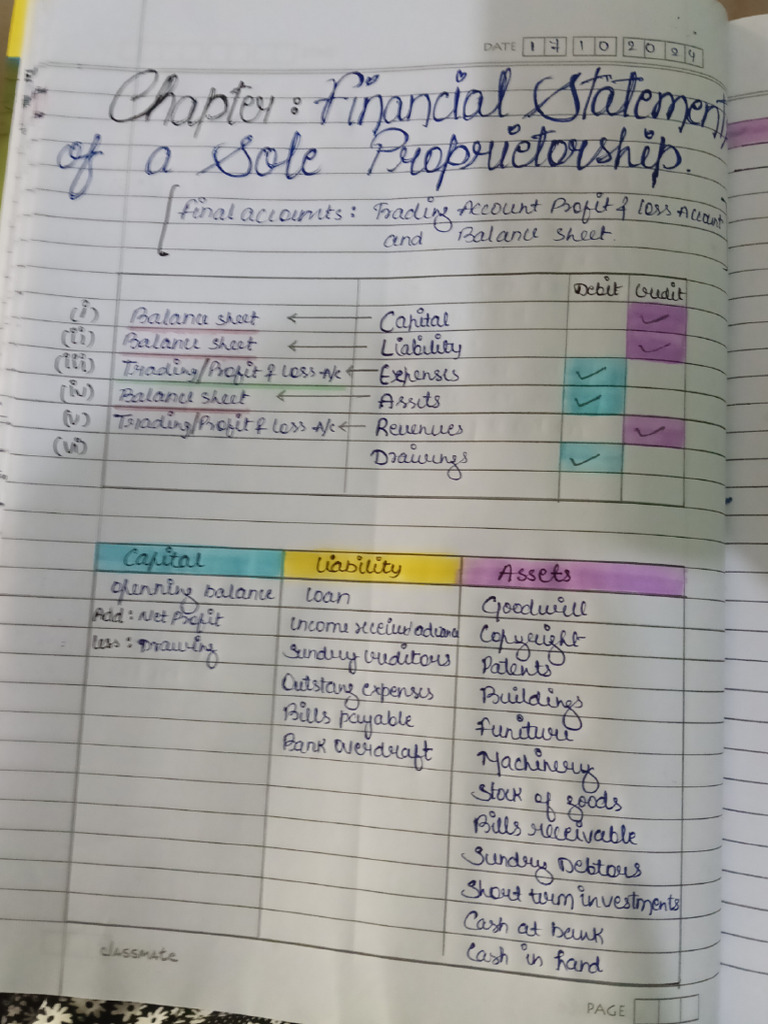 DATE 1 7 1 0 2 0 2 4
Chapter: Financial Statement
of a Sole Proprietorship.
final accounts: Trading Account Profit & Loss Account
and Balance sheet.
Debit Credit
(i) Balance sheet ← Capital ✓
(ii) Balance sheet ← Liability ✓
(iii) Trading/Profit & Loss A/c ← Expenses ✓
(iv) Balance sheet ← Assets ✓
(v) Trading/Profit & Loss A/c ← Revenues ✓
(vi) Drawings ✓
Capital Liability Assets
openning balance loan Goodwill
Add: Net Profit Income receive/advance Copyright
less: Drawing Sundry creditors Patents
Outstang expenses Buildings
Bills payable Funiture
Bank overdraft Machinery
Stock of goods
Bills receivable
Sundry Debtors
Short term investments
Cash at bank
Cash in hand
classmate
PAGE